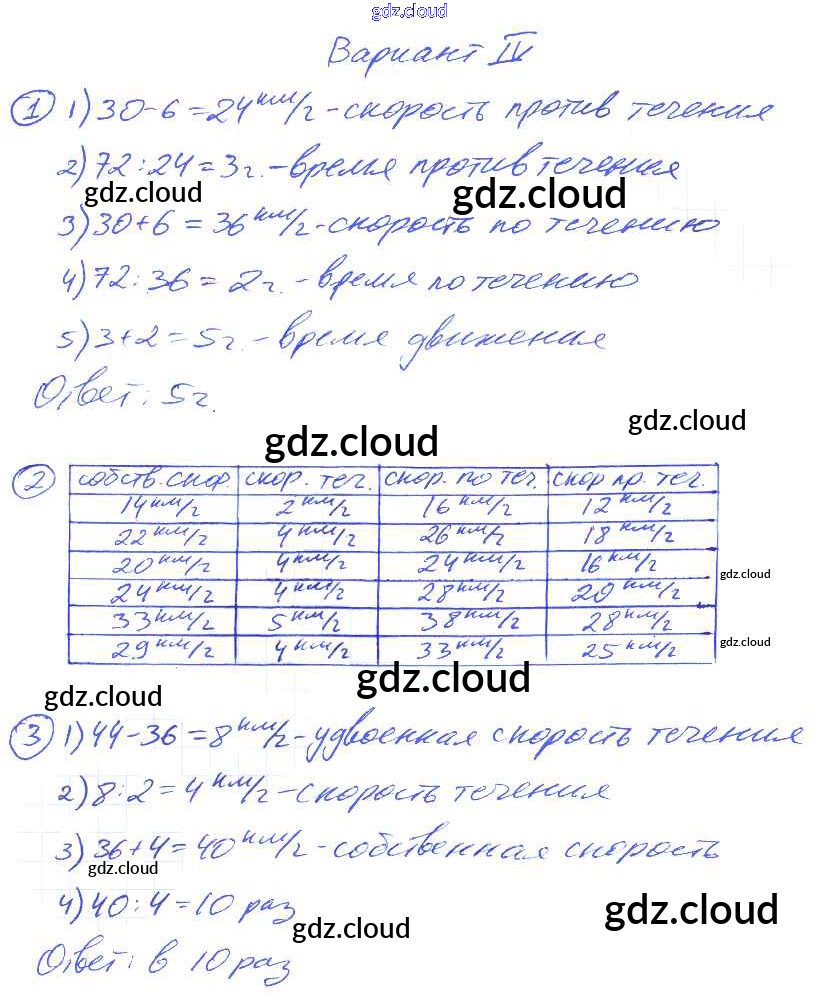 gdz.cloud
Вариант IV
1 1) 30-6=24 км/г - скорость против течения
2) 72:24=3г. - время против течения
gdz.cloud gdz.cloud
3) 30+6=36 км/г - скорость по течению
4) 72:36=2г. - время по течению
5) 3+2=5г. - время движения
Ответ: 5г.
gdz.cloud
gdz.cloud
2 собств. скор. скор. теч. скор. по теч. скор пр. теч.
14 км/г 2 км/г 16 км/г 12 км/г
22 км/г 4 км/г 26 км/г 18 км/г
20 км/г 4 км/г 24 км/г 16 км/г
gdz.cloud
24 км/г 4 км/г 28 км/г 20 км/г
33 км/г 5 км/г 38 км/г 28 км/г
29 км/г 4 км/г 33 км/г 25 км/г
gdz.cloud
gdz.cloud
gdz.cloud
3 1) 44-36=8 км/г - удвоенная скорость течения
2) 8:2=4 км/г - скорость течения
3) 36+4=40 км/г - собственная скорость
gdz.cloud
4) 40:4=10 раз
gdz.cloud
gdz.cloud
Ответ: в 10 раз